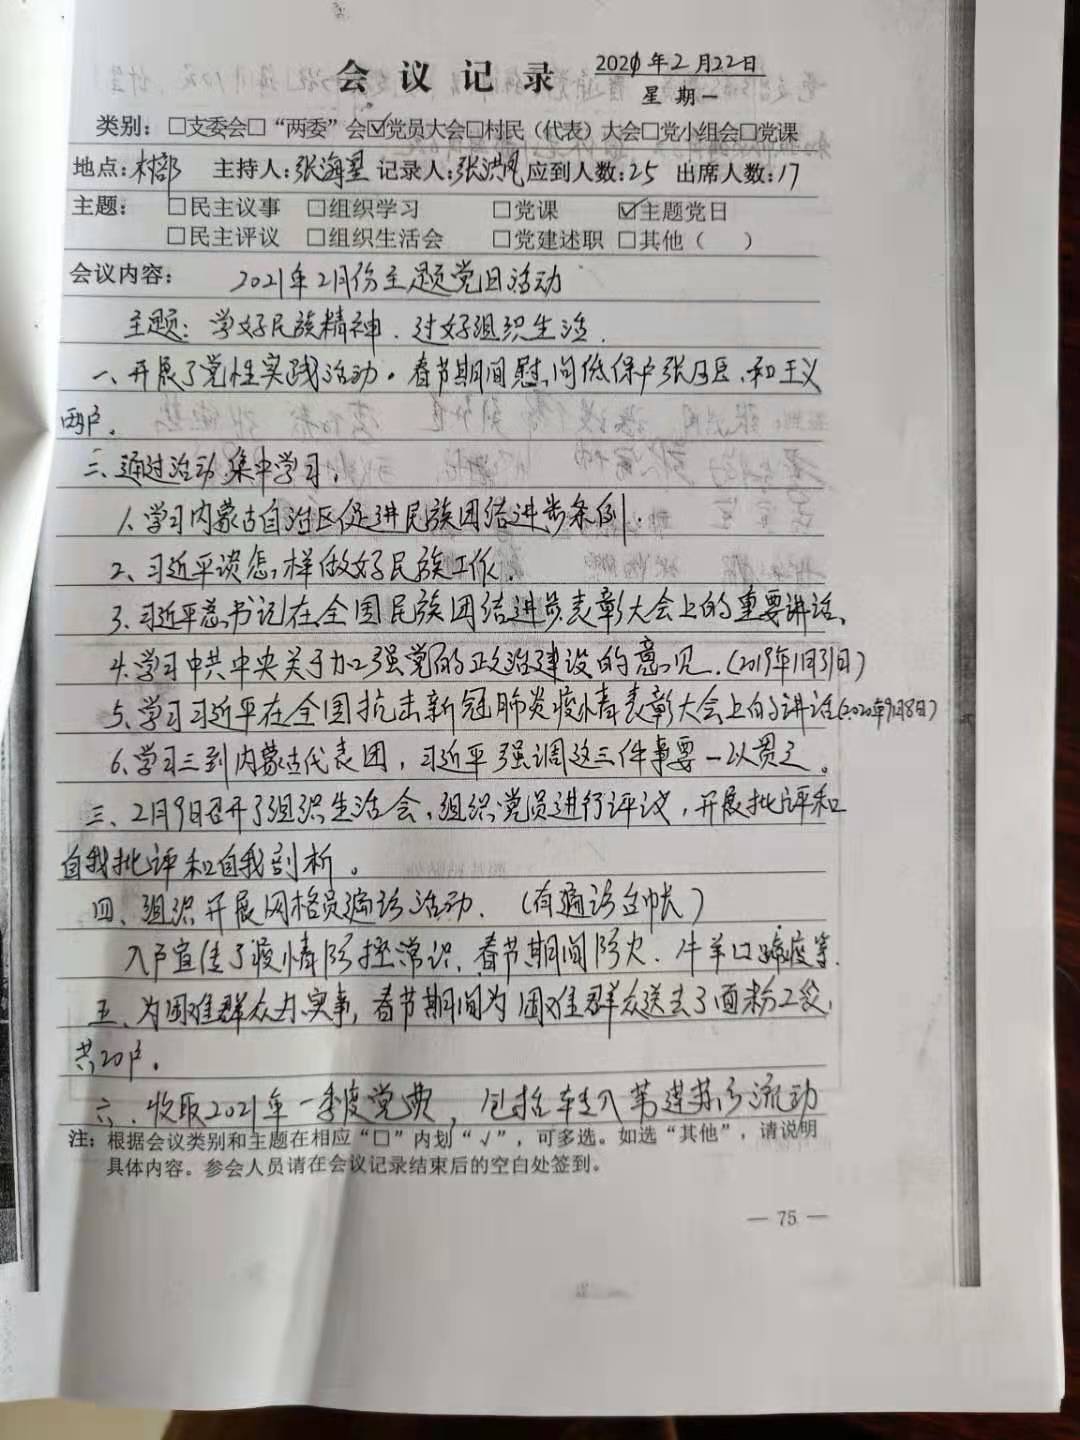 会议记录
2021年2月22日
星期一
类别：□支委会□“两委”会☑党员大会□村民（代表）大会□党小组会□党课
地点：村部 主持人：张海星 记录人：张洪 应到人数：25 出席人数：17
主题： □民主议事 □组织学习 □党课 ☑主题党日
□民主评议 □组织生活会 □党建述职 □其他（ ）
会议内容： 2021年2月份主题党日活动
主题：学好民族精神．过好组织生活．
一、开展了党性实践活动。春节期间慰问低保户张 和王义
两户。
二、通过活动集中学习：
1、学习内蒙古自治区促进民族团结进步条例．
2、习近平谈怎样做好民族工作．
3、习近平总书记在全国民族团结进步表彰大会上的重要讲话、
4、学习中共中央关于加强党的政治建设的意见．（2019年1月31日）
5、学习习近平在全国抗击新冠肺炎疫情表彰大会上的讲话（2020年9月8日）
6、学习三到内蒙古代表团，习近平强调这三件事要一以贯之。
三、2月9日召开了组织生活会、组织党员进行评议，开展批评和
自我批评和自我剖析。
四、组织开展网格员遍访活动．（有遍访台帐）
入户宣传了疫情防控常识、春节期间防火．牛羊口蹄疫等．
五、为困难群众办实事，春节期间为困难群众送去了面粉2袋，
共20户。
六、收取2021年一季度党费，包括转入 流动
注：根据会议类别和主题在相应“□”内划“√”，可多选。如选“其他”，请说明
具体内容。参会人员请在会议记录结束后的空白处签到。
— 75 —